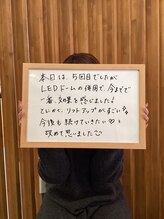 本日は、5回目でしたが
LEDドームの併用で、今までで
一番、効果を感じました!
でいかく、リフトアップがすごい!!
今後も続けていきたい♡と
改めて思いました☺